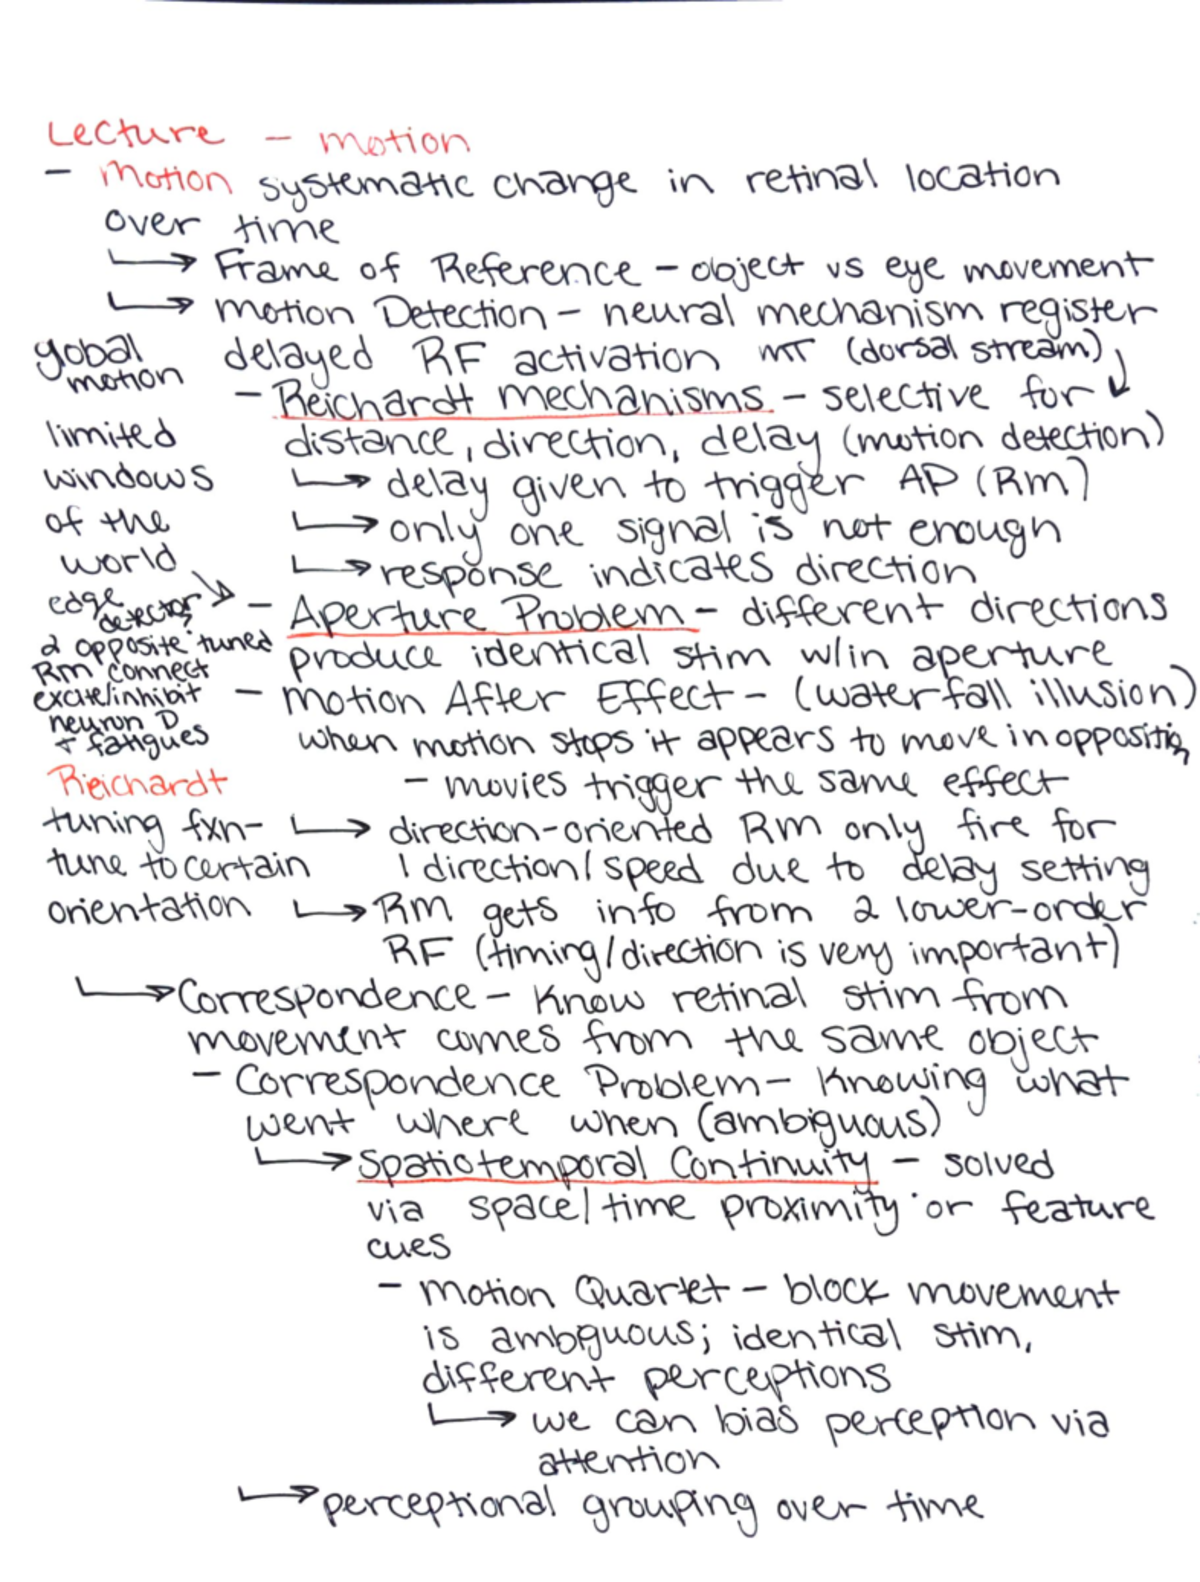 Lecture - motion
- Motion systematic change in retinal location
over time
↳ Frame of Reference - object vs eye movement
↳ motion Detection - neural mechanism register
delayed RF activation MT (dorsal stream)
- Reichardt mechanisms - selective for
distance, direction, delay (motion detection)
↳ delay given to trigger AP (Rm)
↳ only one signal is not enough
↳ response indicates direction
- Aperture Problem - different directions
produce identical stim w/in aperture
- motion After Effect - (waterfall illusion)
when motion stops it appears to move in oppositin
- movies trigger the same effect
↳ direction-oriented Rm only fire for
1 direction/speed due to delay setting
↳ Rm gets info from 2 lower-order
RF (timing/direction is very important)
↳ Correspondence - Know retinal stim from
movement comes from the same object
- Correspondence Problem - Knowing what
went where when (ambiguous)
↳ Spatiotemporal Continuity - solved
via space/time proximity or feature
cues
- motion Quartet - block movement
is ambguous; identical stim,
different perceptions
↳ we can bias perception via
attention
↳ perceptional grouping over time
gobal
motion
limited
windows
of the
world
edge
detector
2 opposite tuned
Rm connect
excite/inhibit
neuron D
+ fatigues
Rieichardt
tuning fxn-
tune to certain
orientation